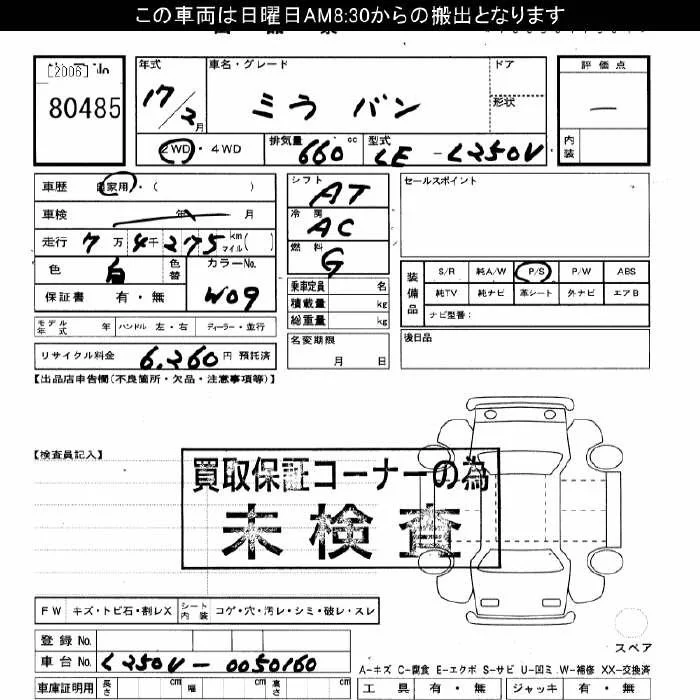 この車両は日曜日AM8:30からの搬出となります
[2006]
80485
年式
17/2月
車名・グレード
ミラ バン
ドア
形状
評価点
—
内装
2WD・4WD
排気量
660 cc
型式
LE-L250V
車歴 自家用・( )
車検 年 月
走行 7万4千275 km マイル( )
色 白 色替
カラーNo.
W09
保証書 有・無
シフト
AT
冷房
AC
燃料
G
乗車定員 名
積載量 kg
総重量 kg
名変期限
月 日
セールスポイント
装備品
S/R 純A/W P/S P/W ABS
純TV 純ナビ 革シート 外ナビ エアB
ナビ型番:
後日品
モデル年式 年 ハンドル 左・右 ディーラー・並行
リサイクル料金 6,260円 預託済
【出品店申告欄(不良箇所・欠品・注意事項等)】
【検査員記入】
買取保証コーナーの為
未検査
FW キズ・トビ石・割レX シート内装 コゲ・穴・汚レ・シミ・破レ・スレ
登録No.
車台No. L250V-0050160
車庫証明用 長さ cm 幅 cm 高さ cm
スペア
A-キズ C-腐食 E-エクボ S-サビ U-凹ミ W-補修 XX-交換済
工具 有・無 ジャッキ 有・無